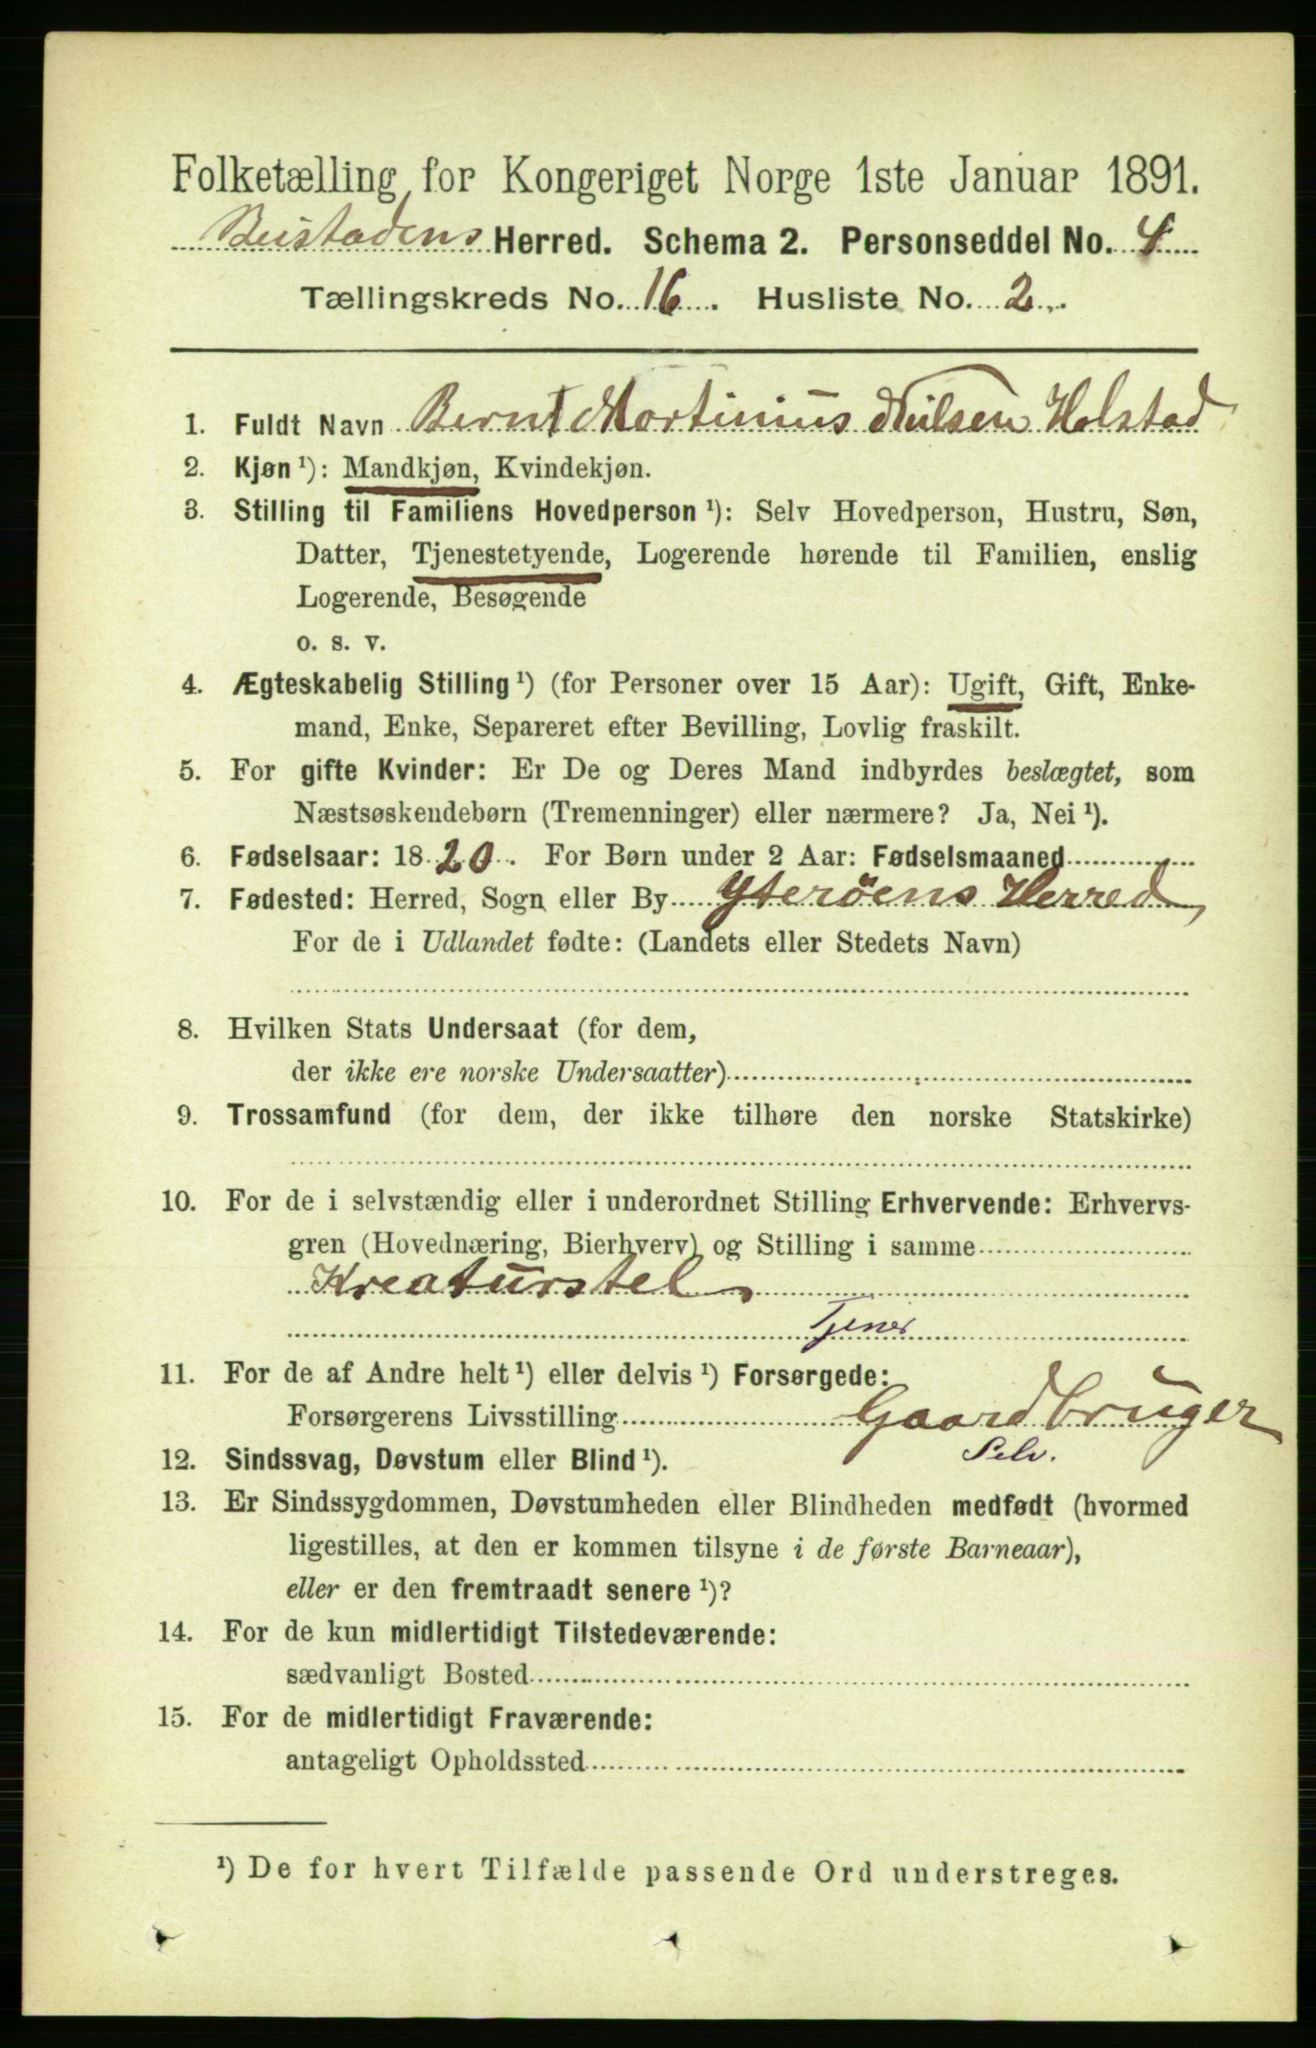 Folketælling for Kongeriget Norge 1ste Januar 1891.
Beistadens Herred. Schema 2. Personseddel No. 4
Tællingskreds No. 16. Husliste No. 2.
1. Fuldt Navn Bernt Martinius Nilsen Holstad
2. Kjøn ¹): Mandkjøn, Kvindekjøn.
3. Stilling til Familiens Hovedperson ¹): Selv Hovedperson, Hustru, Søn,
Datter, Tjenestetyende, Logerende hørende til Familien, enslig
Logerende, Besøgende
o. s. v.
4. Ægteskabelig Stilling ¹) (for Personer over 15 Aar): Ugift, Gift, Enke-
mand, Enke, Separeret efter Bevilling, Lovlig fraskilt.
5. For gifte Kvinder: Er De og Deres Mand indbyrdes beslægtet, som
Næstsøskendebørn (Tremenninger) eller nærmere? Ja, Nei ¹).
6. Fødselsaar: 1820. For Børn under 2 Aar: Fødselsmaaned
7. Fødested: Herred, Sogn eller By Yterøens Herred
For de i Udlandet fødte: (Landets eller Stedets Navn)
8. Hvilken Stats Undersaat (for dem,
der ikke ere norske Undersaatter)
9. Trossamfund (for dem, der ikke tilhøre den norske Statskirke)
10. For de i selvstændig eller i underordnet Stilling Erhvervende: Erhvervs-
gren (Hovednæring, Bierhverv) og Stilling i samme
Kreaturstel
Tjener
11. For de af Andre helt ¹) eller delvis ¹) Forsørgede:
Forsørgerens Livsstilling Gaardbruger
Selv.
12. Sindssvag, Døvstum eller Blind ¹).
13. Er Sindssygdommen, Døvstumheden eller Blindheden medfødt (hvormed
ligestilles, at den er kommen tilsyne i de første Barneaar),
eller er den fremtraadt senere ¹)?
14. For de kun midlertidigt Tilstedeværende:
sædvanligt Bosted
15. For de midlertidigt Fraværende:
antageligt Opholdssted
¹) De for hvert Tilfælde passende Ord understreges.